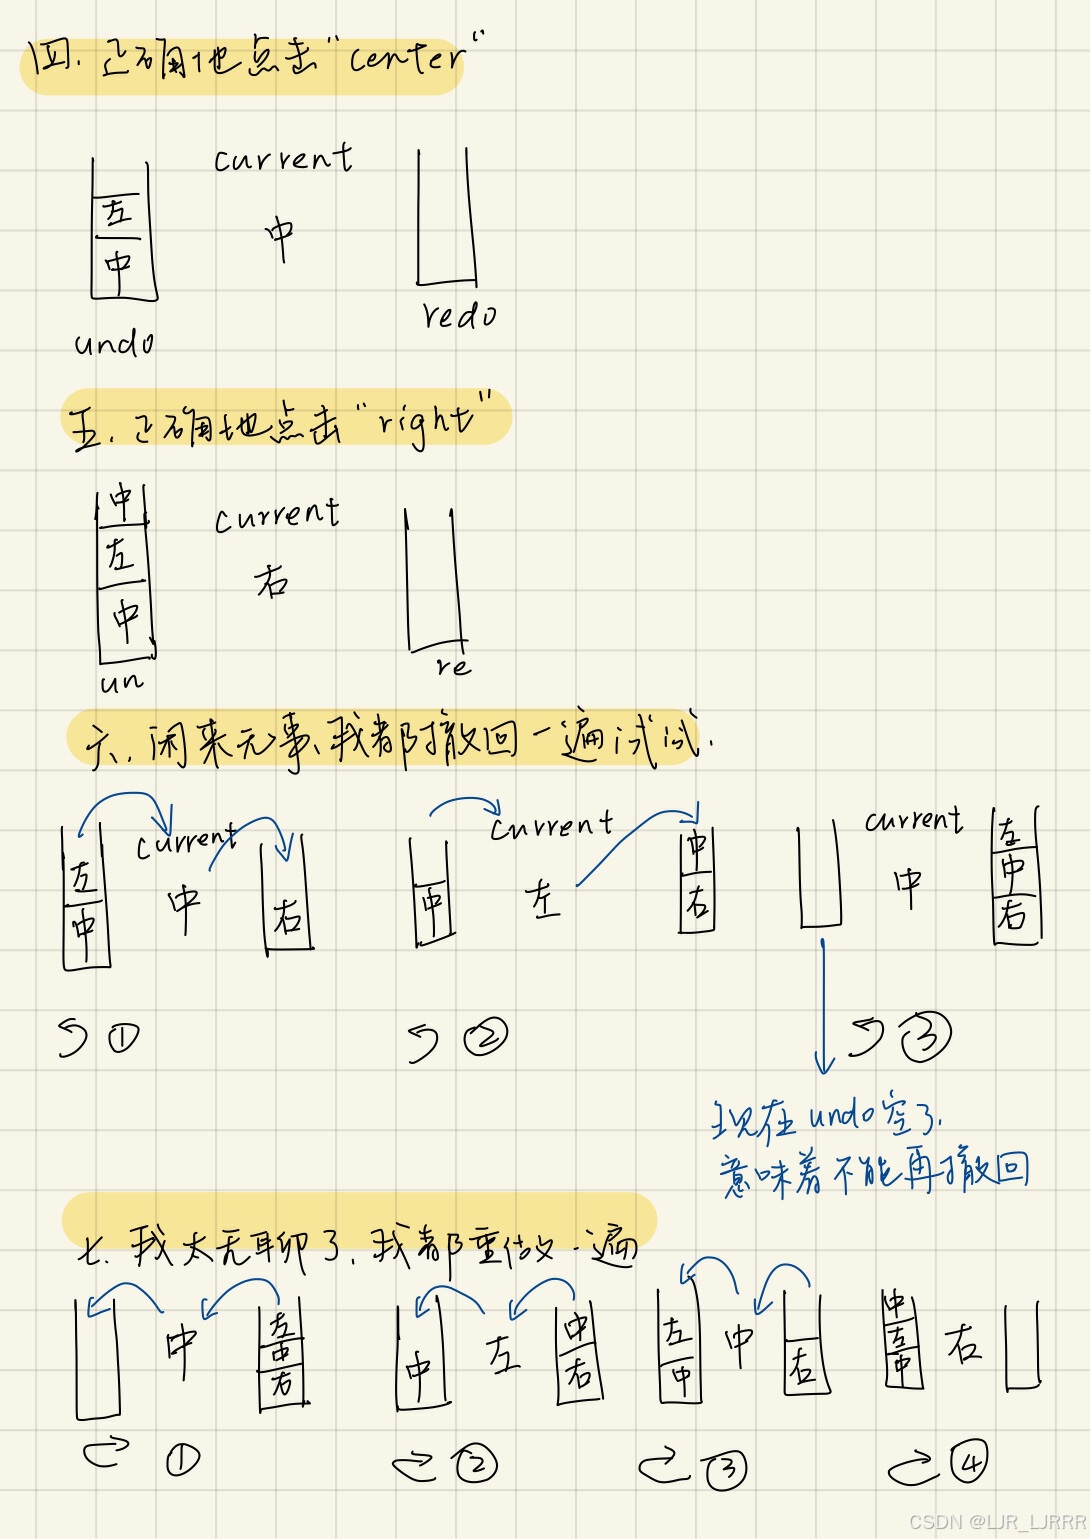 四. 正确地点击“center”
current
左
中
中
undo
redo
五. 正确地点击“right”
中
左
中
current
右
un
re
六. 闲来无事、我都撤回一遍试试.
左
中
current
中
右
中
current
左
中
右
current
中
左
中
右
①
②
③
现在undo空了.
意味着不能再撤回
七. 我太无聊了, 我都重做一遍
中
左
中
右
中
左
中
右
左
中
中
右
中
左
中
右
①
②
③
④
CSDN @LJR_LJRRR